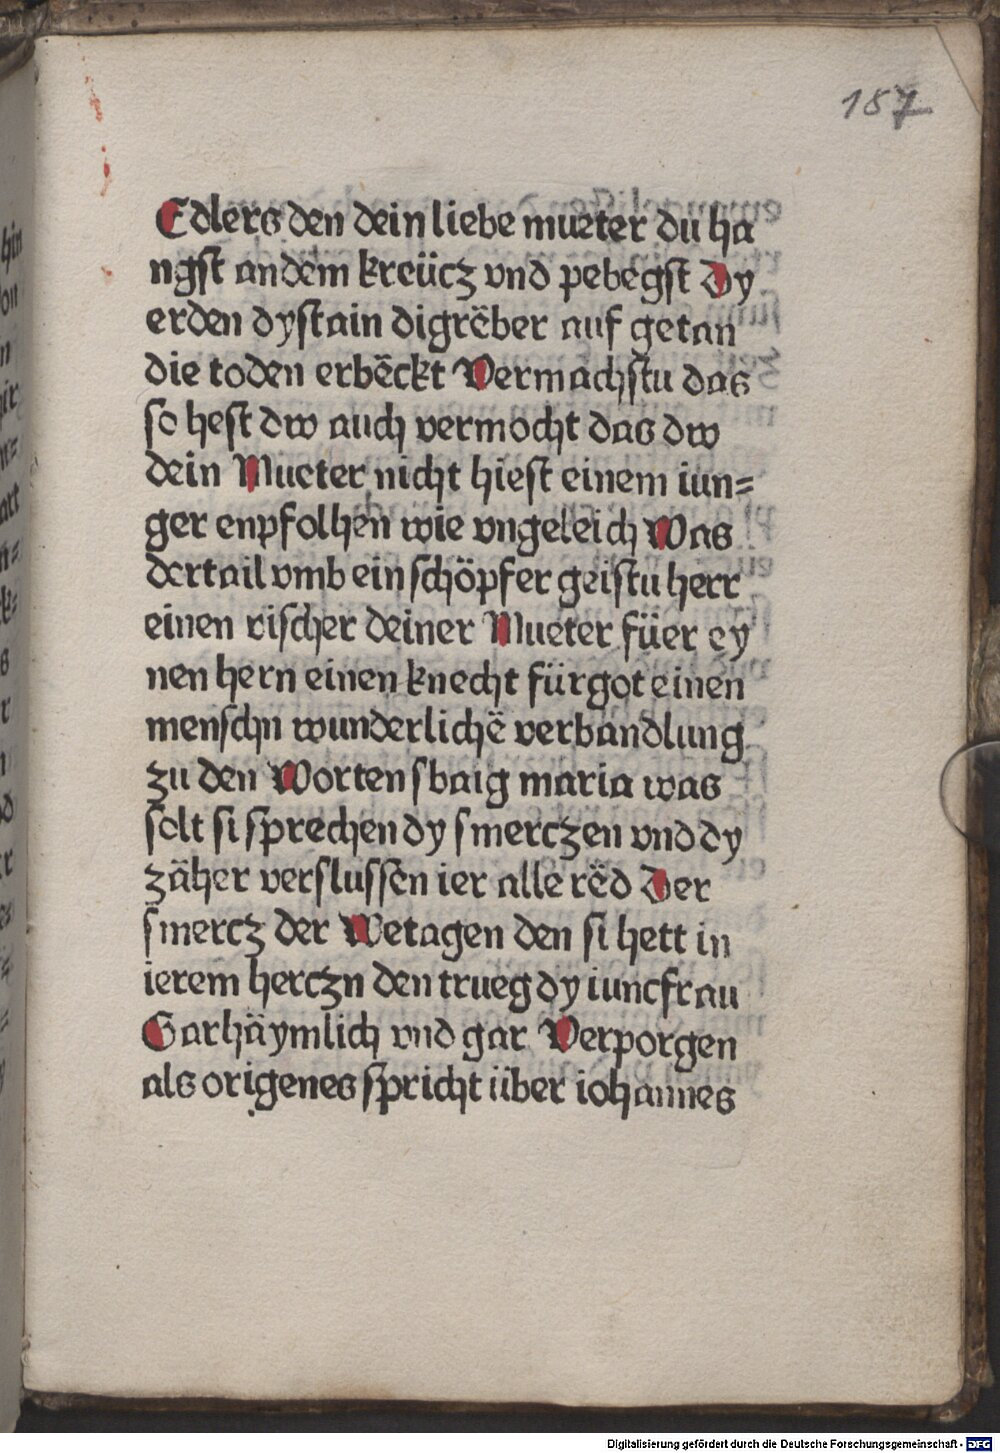 187
Edlers den dein liebe mueter du ha
ngst an dem kreücz vnd pebegst Dy
erden dy stain di grëber auf getan
die toden erbëckt Vermachstu das
so hest dw auch vermocht das dw
dein Mueter nicht hiest einem iun=
ger enpfolhen wie vngeleich Was
der tail vmb ein schöpfer geistu herr
einen vischer deiner Mueter füer ey
nen hern einen knecht für got einen
menschn wunderlichë verbandlung
zu den Worten sbaig maria was
solt si sprechen dy smerczen vnd dy
zäher verslussen ier alle rëd Der
smercz der Wetagen den si hett in
ierem herczn den trueg dy iuncfrau
Gar häymlich vnd gar Verporgen
als origenes spricht über iohannes
Digitalisierung gefördert durch die Deutsche Forschungsgemeinschaft - DFG